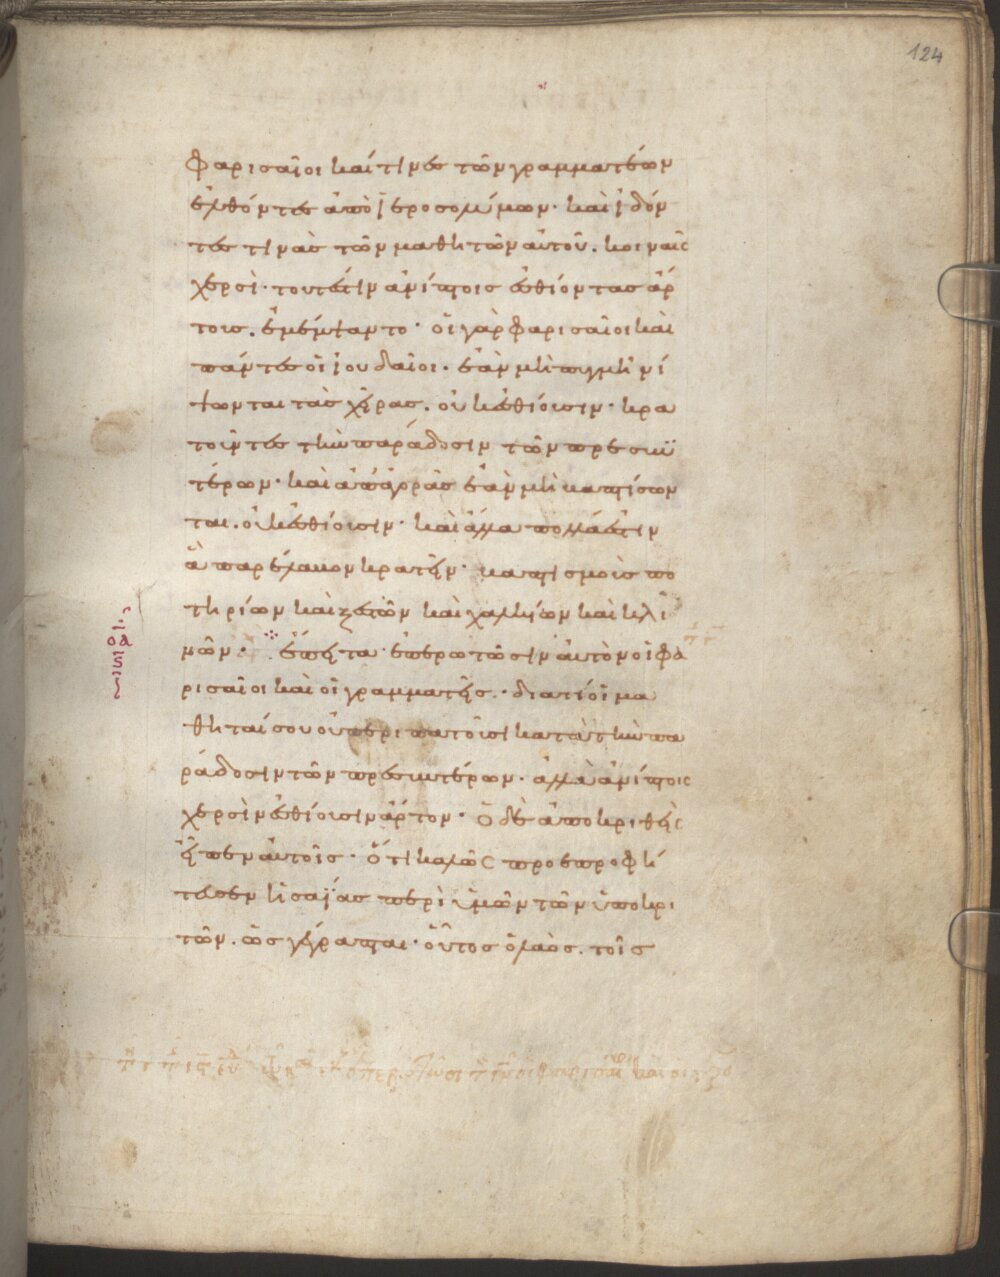 124
φαρισαῖοι καί τινες τῶν γραμματέων
ἐλθόντες ἀπὸ ἱεροσολύμων· καὶ ἰδόν
τες τινὰς τῶν μαθητῶν αὐτοῦ. κοιναῖς
χερσὶ· τουτέστιν ἀνίπτοις ἐσθίοντας ἄρ
τοις. ἐμέμψαντο· οἱ γὰρ φαρισαῖοι καὶ
πάντες οἱ ἰουδαῖοι. ἐὰν μὴ πυγμῇ νί
ψωνται τὰς χεῖρας. οὐκ ἐσθίουσιν· κρα
τοῦντες τὴν παράδοσιν τῶν πρεσβυ
τέρων· καὶ ἀπὸ ἀγορᾶς ἐὰν μὴ βαπτίσων
ται. οὐκ ἐσθίουσιν· καὶ ἄλλα πολλά ἐστιν
ἃ παρέλαβον κρατεῖν· βαπτισμοὺς πο
τηρίων καὶ ξεστῶν καὶ χαλκίων καὶ κλι
νῶν· ἔπειτα ἐπερωτῶσιν αὐτὸν οἱ φα
ρισαῖοι καὶ οἱ γραμματεῖς· διατί οἱ μα
θηταί σου οὐ περιπατοῦσι κατὰ τὴν πα
ράδοσιν τῶν πρεσβυτέρων· ἀλλὰ ἀνίπτοις
χερσὶν ἐσθίουσιν ἄρτον· Ὁ δὲ ἀποκριθεὶς
εἶπεν αὐτοῖς· ὅτι καλῶς προεπροφή
τευσεν ἡσαΐας περὶ ὑμῶν τῶν ὑποκρι
τῶν. ὡς γέγραπται· οὗτος ὁ λαὸς. τοῖς